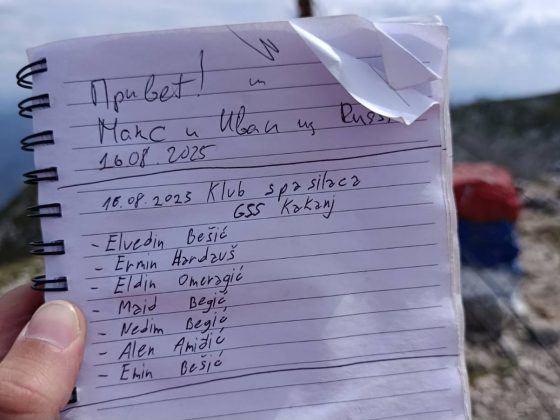 Привет!
Макс и Иван из Russi
16.08.2025
16.08.2025 Klub spasilaca
GSS Kakanj
- Elvedin Bešić
- Ermin Hardauš
- Eldin Omeragić
- Maid Begić
- Nedim Begić
- Alen Amidić
- Emin Bešić